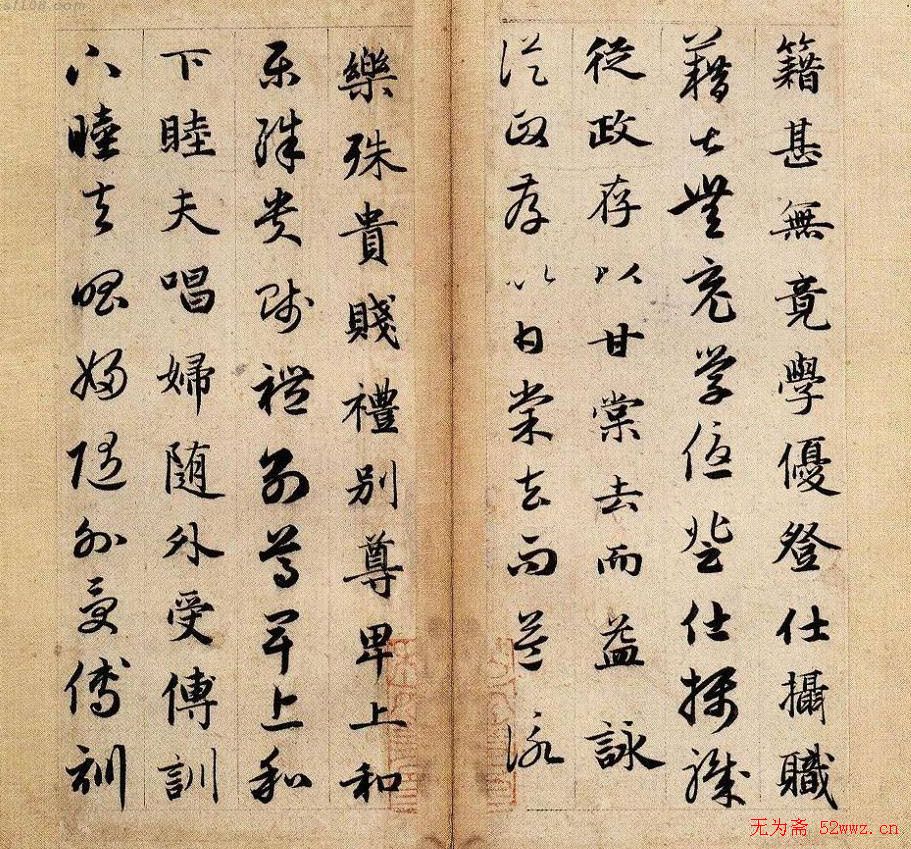 籍甚無竟學優登仕攝職
籍甚無竟學優登仕攝職
從政存以甘棠去而益詠
從政存以甘棠去而益詠
樂殊貴賤禮別尊卑上和
樂殊貴賤禮別尊卑上和
下睦夫唱婦隨外受傅訓
下睦夫唱婦隨外受傅訓
无为斋 52wwz.cn